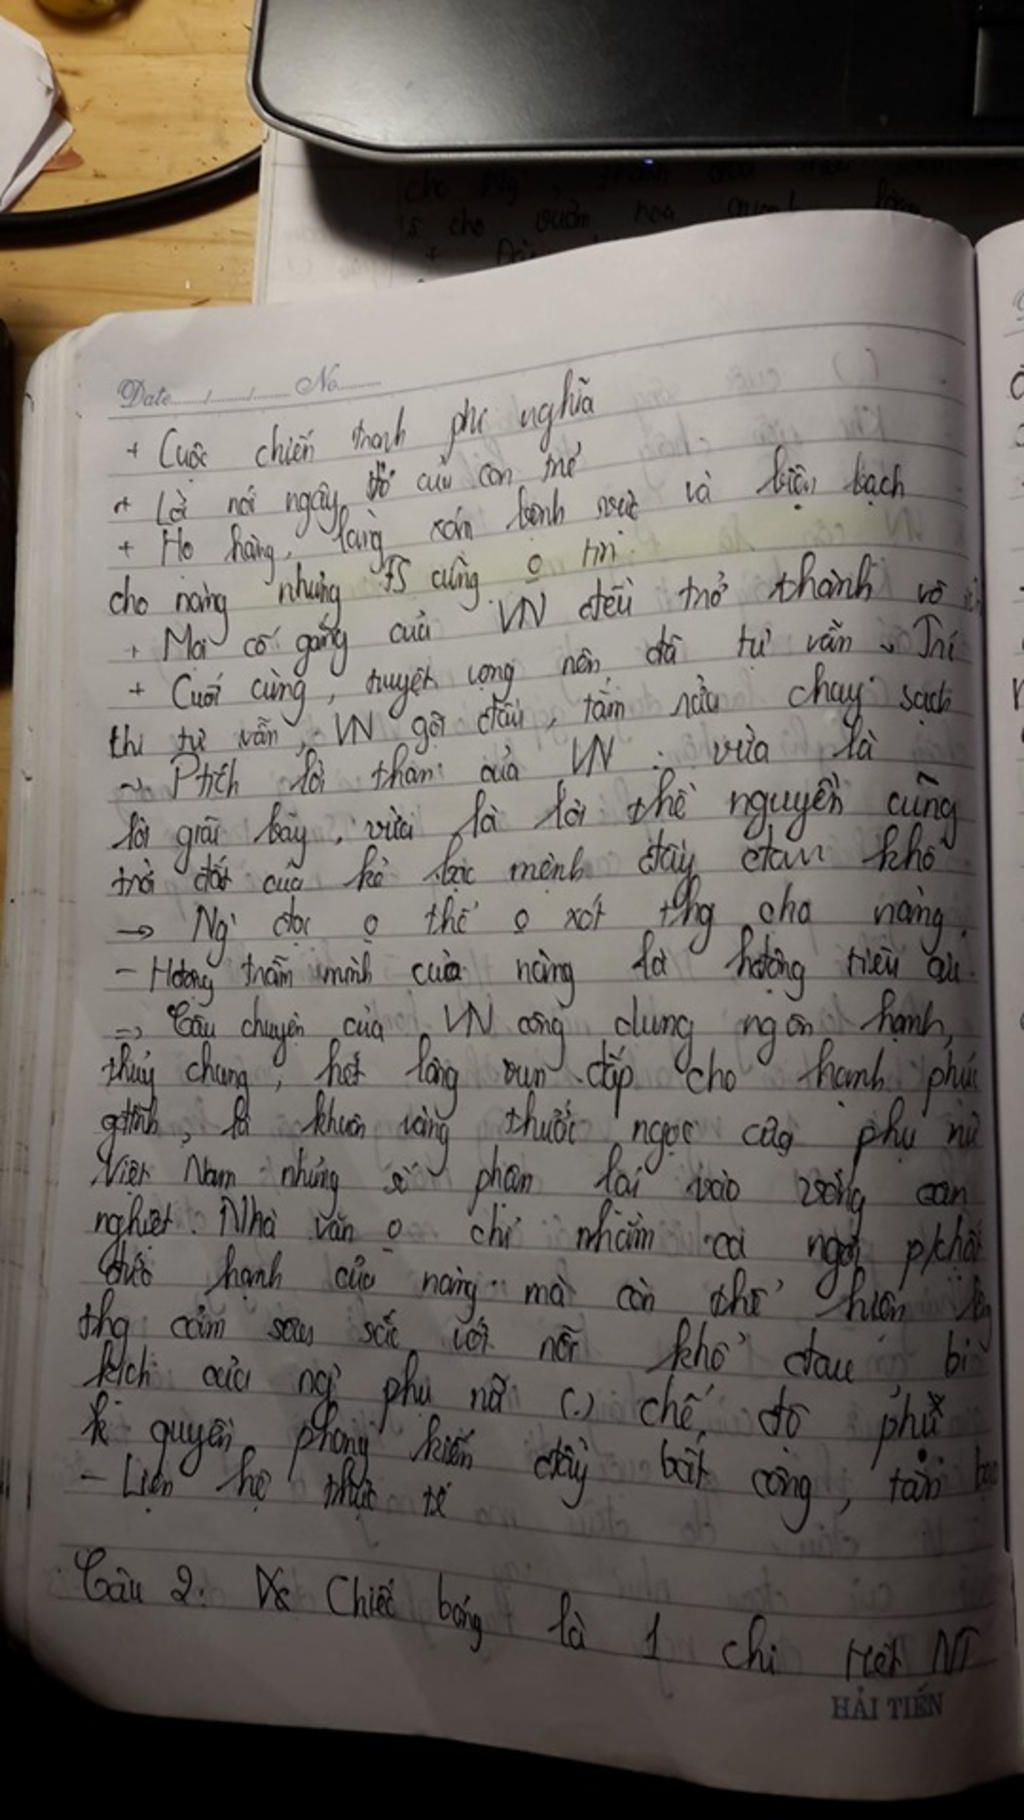 cho Ng'
s cho vườn hoa
Date...../...../..... No..........
+ Cuộc chiến tranh phi nghĩa
+ Lời nói ngây thơ của con trẻ
+ Họ hàng, làng xóm bênh vực và biện bạch
cho nàng nhưng TS cũng o tin
+ Mọi cố gắng của VN đều trở thành vô
+ Cuối cùng, tuyệt vọng nên đã tự vẫn. Trc
khi tự vẫn, VN gội đầu, tắm rửa chay sạch
-> Ptích lời than của VN : vừa là
lời giãi bày, vừa là lời thề nguyền cùng
trời đất của kẻ bạc mệnh đầy đau khổ
-> Ng' đọc o thể o xót thg cho nàng.
- Hđộng trẫm mình của nàng là hđộng tiêu cực
=> Câu chuyện của VN công dung ngôn hạnh,
thủy chung, hết lòng vun đắp cho hạnh phúc
gđình, là khuôn vàng thước ngọc của phụ nữ
Việt Nam nhưng số phận lại vào vòng oan
nghiệt. Nhà văn o chỉ nhằm ca ngợi p/chất
đức hạnh của nàng mà còn thể hiện
thg cảm sâu sắc với nỗi khổ đau, bi
kịch của ng' phụ nữ (.) chế độ phụ
k quyền phong kiến đầy bất công, tàn bạo
- Liên hệ thực tế
Câu 2: Chiếc bóng là 1 chi tiết NT
HẢI TIẾN